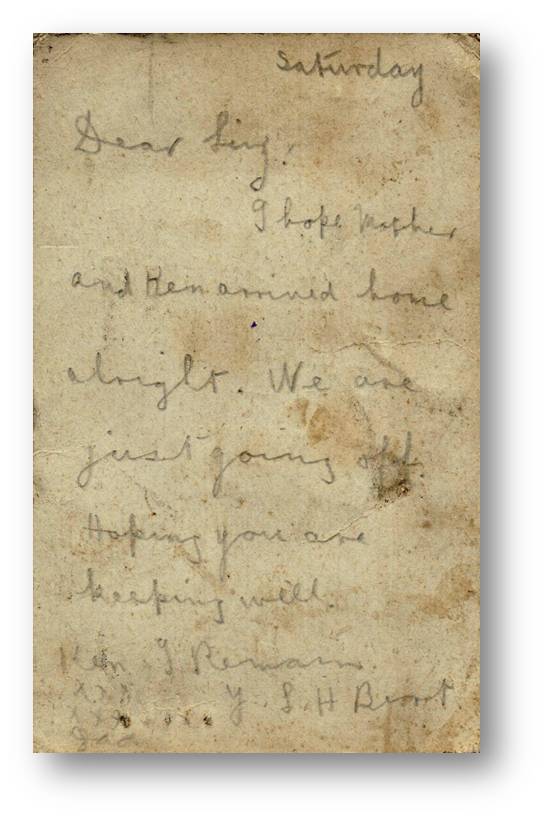 Saturday
Dear
I hope Mother
and Ken arrived home
alright. We are
just going off.
Hoping you are
keeping well.
Ken I Remain
x x x Y. L. H
x x x
Dad